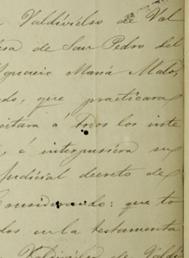 Valdivielso de Val
de San Pedro del
Maria Mato,
do, que practicara
citara á todos los inte
, é interpusiera su
Judicial decreto de
Considerando: que to
dos en la testamenta
Valdivielso de Valdi